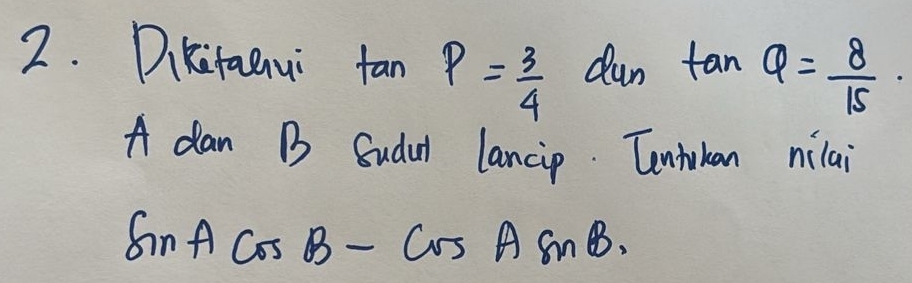 2. Diketahui tan P = 3/4 dan tan Q = 8/15.
A dan B sudut lancip. Tentukan nilai
Sin A Cos B - Cos A Sin B.